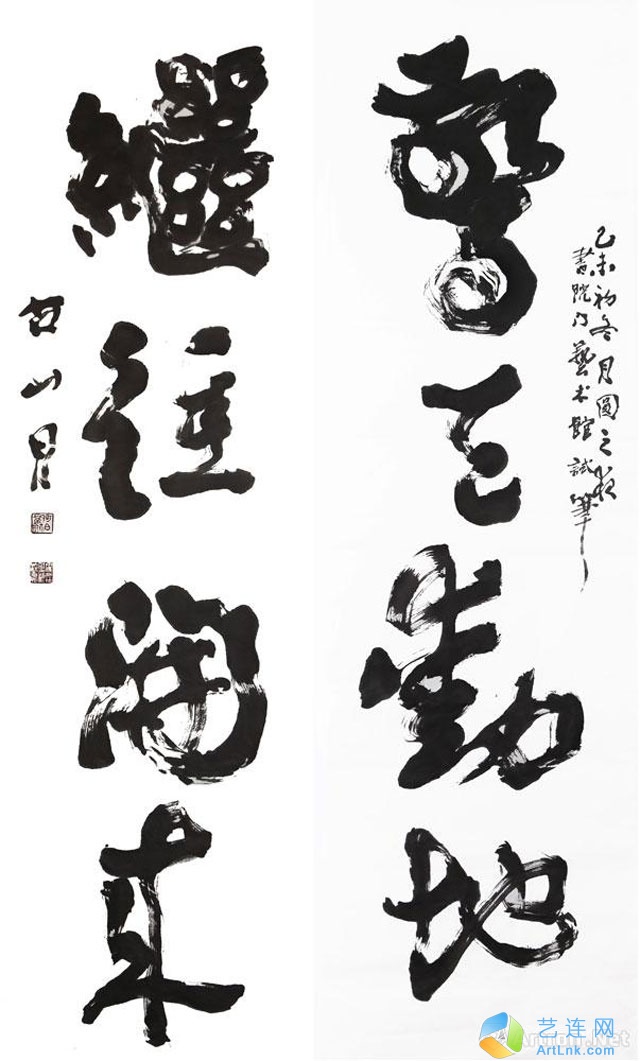 驚天動地
乙未初冬月圓之夜
書院门藝术館試筆
繼往開來
艺连网
ArtLnk.com